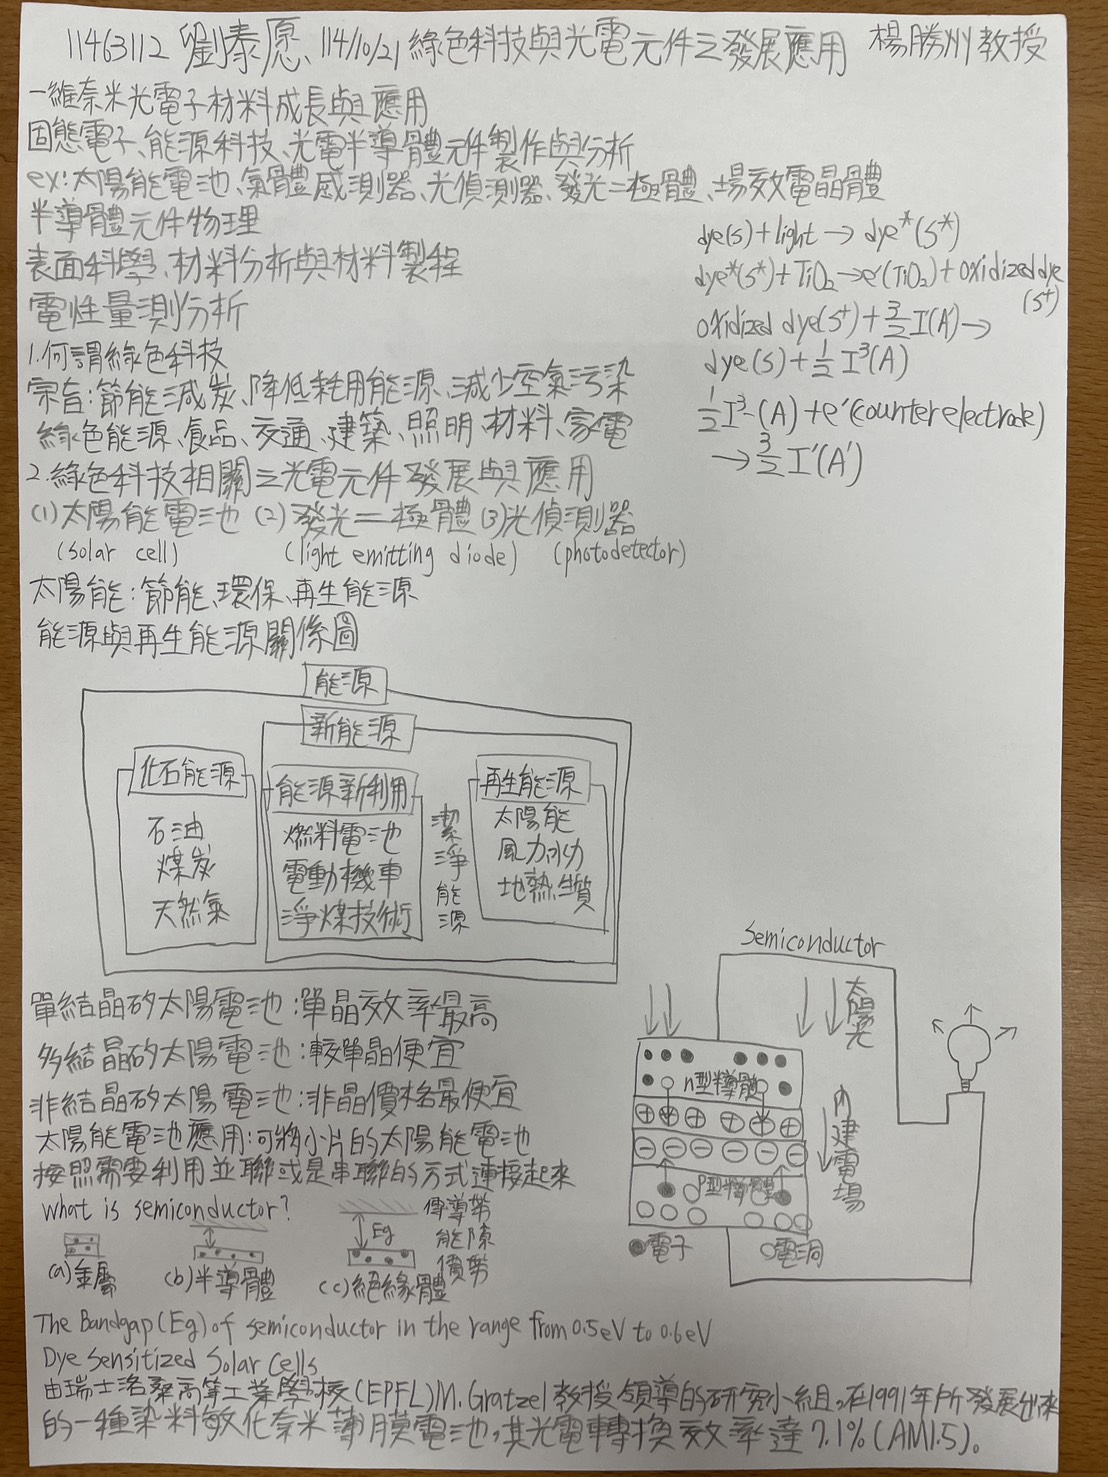 11463112 劉泰愿、114/10/21 綠色科技與光電元件之發展應用 楊勝州教授
一維奈米光電子材料成長與應用
固態電子、能源科技、光電半導體元件製作與分析
ex:太陽能電池、氣體感測器、光偵測器、發光二極體、場效電晶體
半導體元件物理
表面科學、材料分析與材料製程
電性量測分析
1.何謂綠色科技
宗旨:節能減炭、降低耗用能源、減少空氣污染
綠色能源、食品、交通、建築、照明、材料、家電
2.綠色科技相關之光電元件發展與應用
(1)太陽能電池 (2)發光二極體 (3)光偵測器
(solar cell) (light emitting diode) (photodetector)
太陽能:節能、環保、再生能源
能源與再生能源關係圖
dye(s)+light→dye*(s*)
dye*(s*)+TiO2→e'(TiO2)+oxidized dye
(s+)
oxidized dye(s+)+3/2 I(A)→
dye(s)+1/2 I3(A)
1/2 I3-(A)+e'(counter electrode)
→3/2 I'(A')
能源
新能源
化石能源
石油
煤炭
天然氣
能源新利用
燃料電池
電動機車
淨煤技術
潔淨能源
再生能源
太陽能
風力水力
地熱生質
單結晶矽太陽電池:單晶效率最高
多結晶矽太陽電池:較單晶便宜
非結晶矽太陽電池:非晶價格最便宜
太陽能電池應用:可將小片的太陽能電池
按照需要利用並聯或是串聯的方式連接起來
What is semiconductor?
Eg
傳導帶
能隙
價帶
(a)金屬 (b)半導體 (c)絕緣體
Semiconductor
太陽光
n型半導體
內建電場
p型半導體
電子 電洞
The Bandgap(Eg) of semiconductor in the range from 0.5eV to 0.6eV
Dye Sensitized Solar Cells
由瑞士洛桑高等工業學校(EPFL)M. Gratzel教授領導的研究小組,在1991年所發展出來
的一種染料敏化奈米薄膜電池,其光電轉換效率達7.1%(AM1.5)。